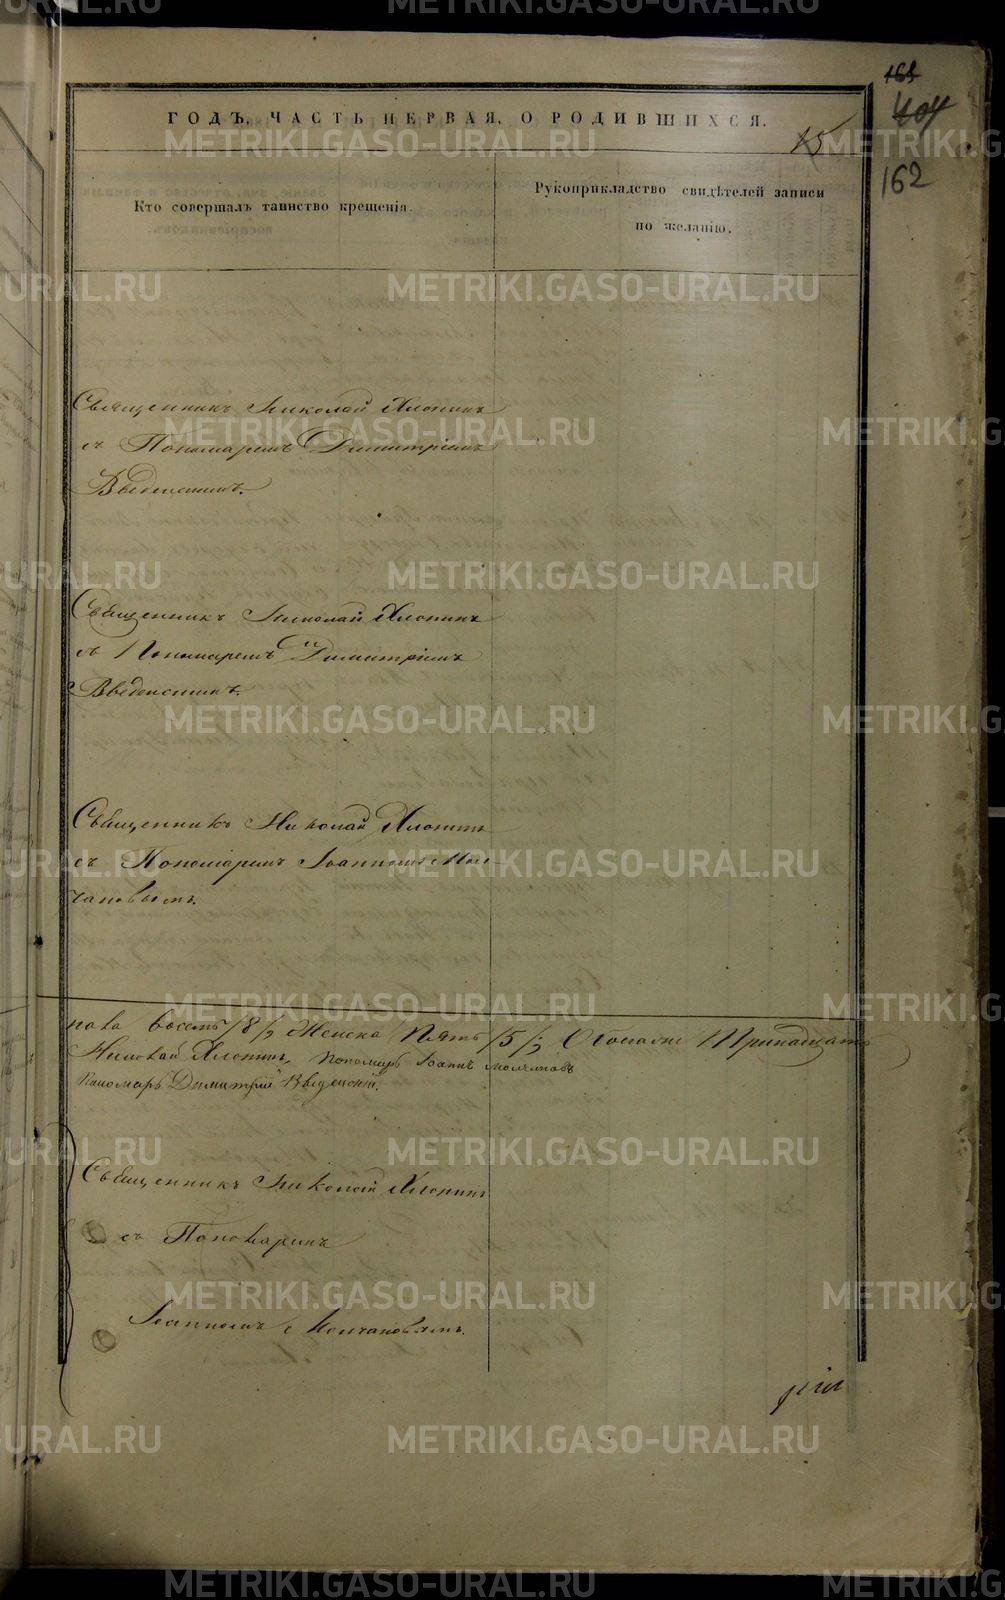 161
404
162
ГОДЪ, ЧАСТЬ ПЕРВАЯ, О РОДИВШИХСЯ.
15
Кто совершалъ таинство крещенія.
Рукоприкладство свидѣтелей записи
по желанію.
Священникъ Николай Хлопинъ
съ Пономаремъ Димитріемъ
Введенскимъ.
Священникъ Николай Хлопинъ
съ Пономаремъ Димитріемъ
Введенскимъ.
Священникъ Николай Хлопинъ
съ Пономаремъ Іоанномъ Мол-
чановымъ.
пола восемь /8/, Женска Пять /5/, Обоего Тринадцать
Николай Хлопинъ, Пономарь Іоаннъ Молчановъ
Пономарь Димитрій Введенскій.
Священникъ Николай Хлопинъ
съ Пономаремъ
Іоанномъ Молчановымъ.
METRIKI.GASO-URAL.RU